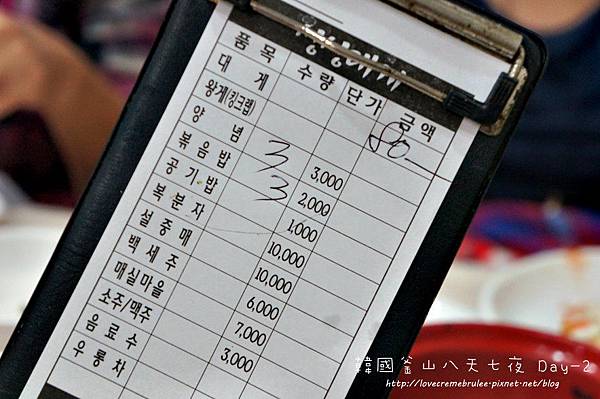 품 목 수량 단가 금액
대 게
왕게(킹크랩)
양 념 3 3,000
볶음밥 3 2,000
공기밥 1,000
복분자 10,000
설중매 10,000
백세주 6,000
매실마을 7,000
소주/맥주 3,000
음료수
우롱차
韓國釜山八天七夜 Day-2
http://lovecremebrulee.pixnet.net/blog